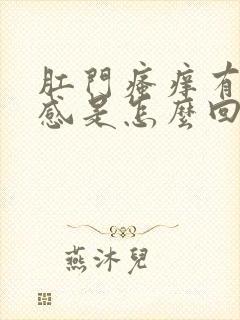 肛門瘙痒有
感是怎麼回
燕沐兒